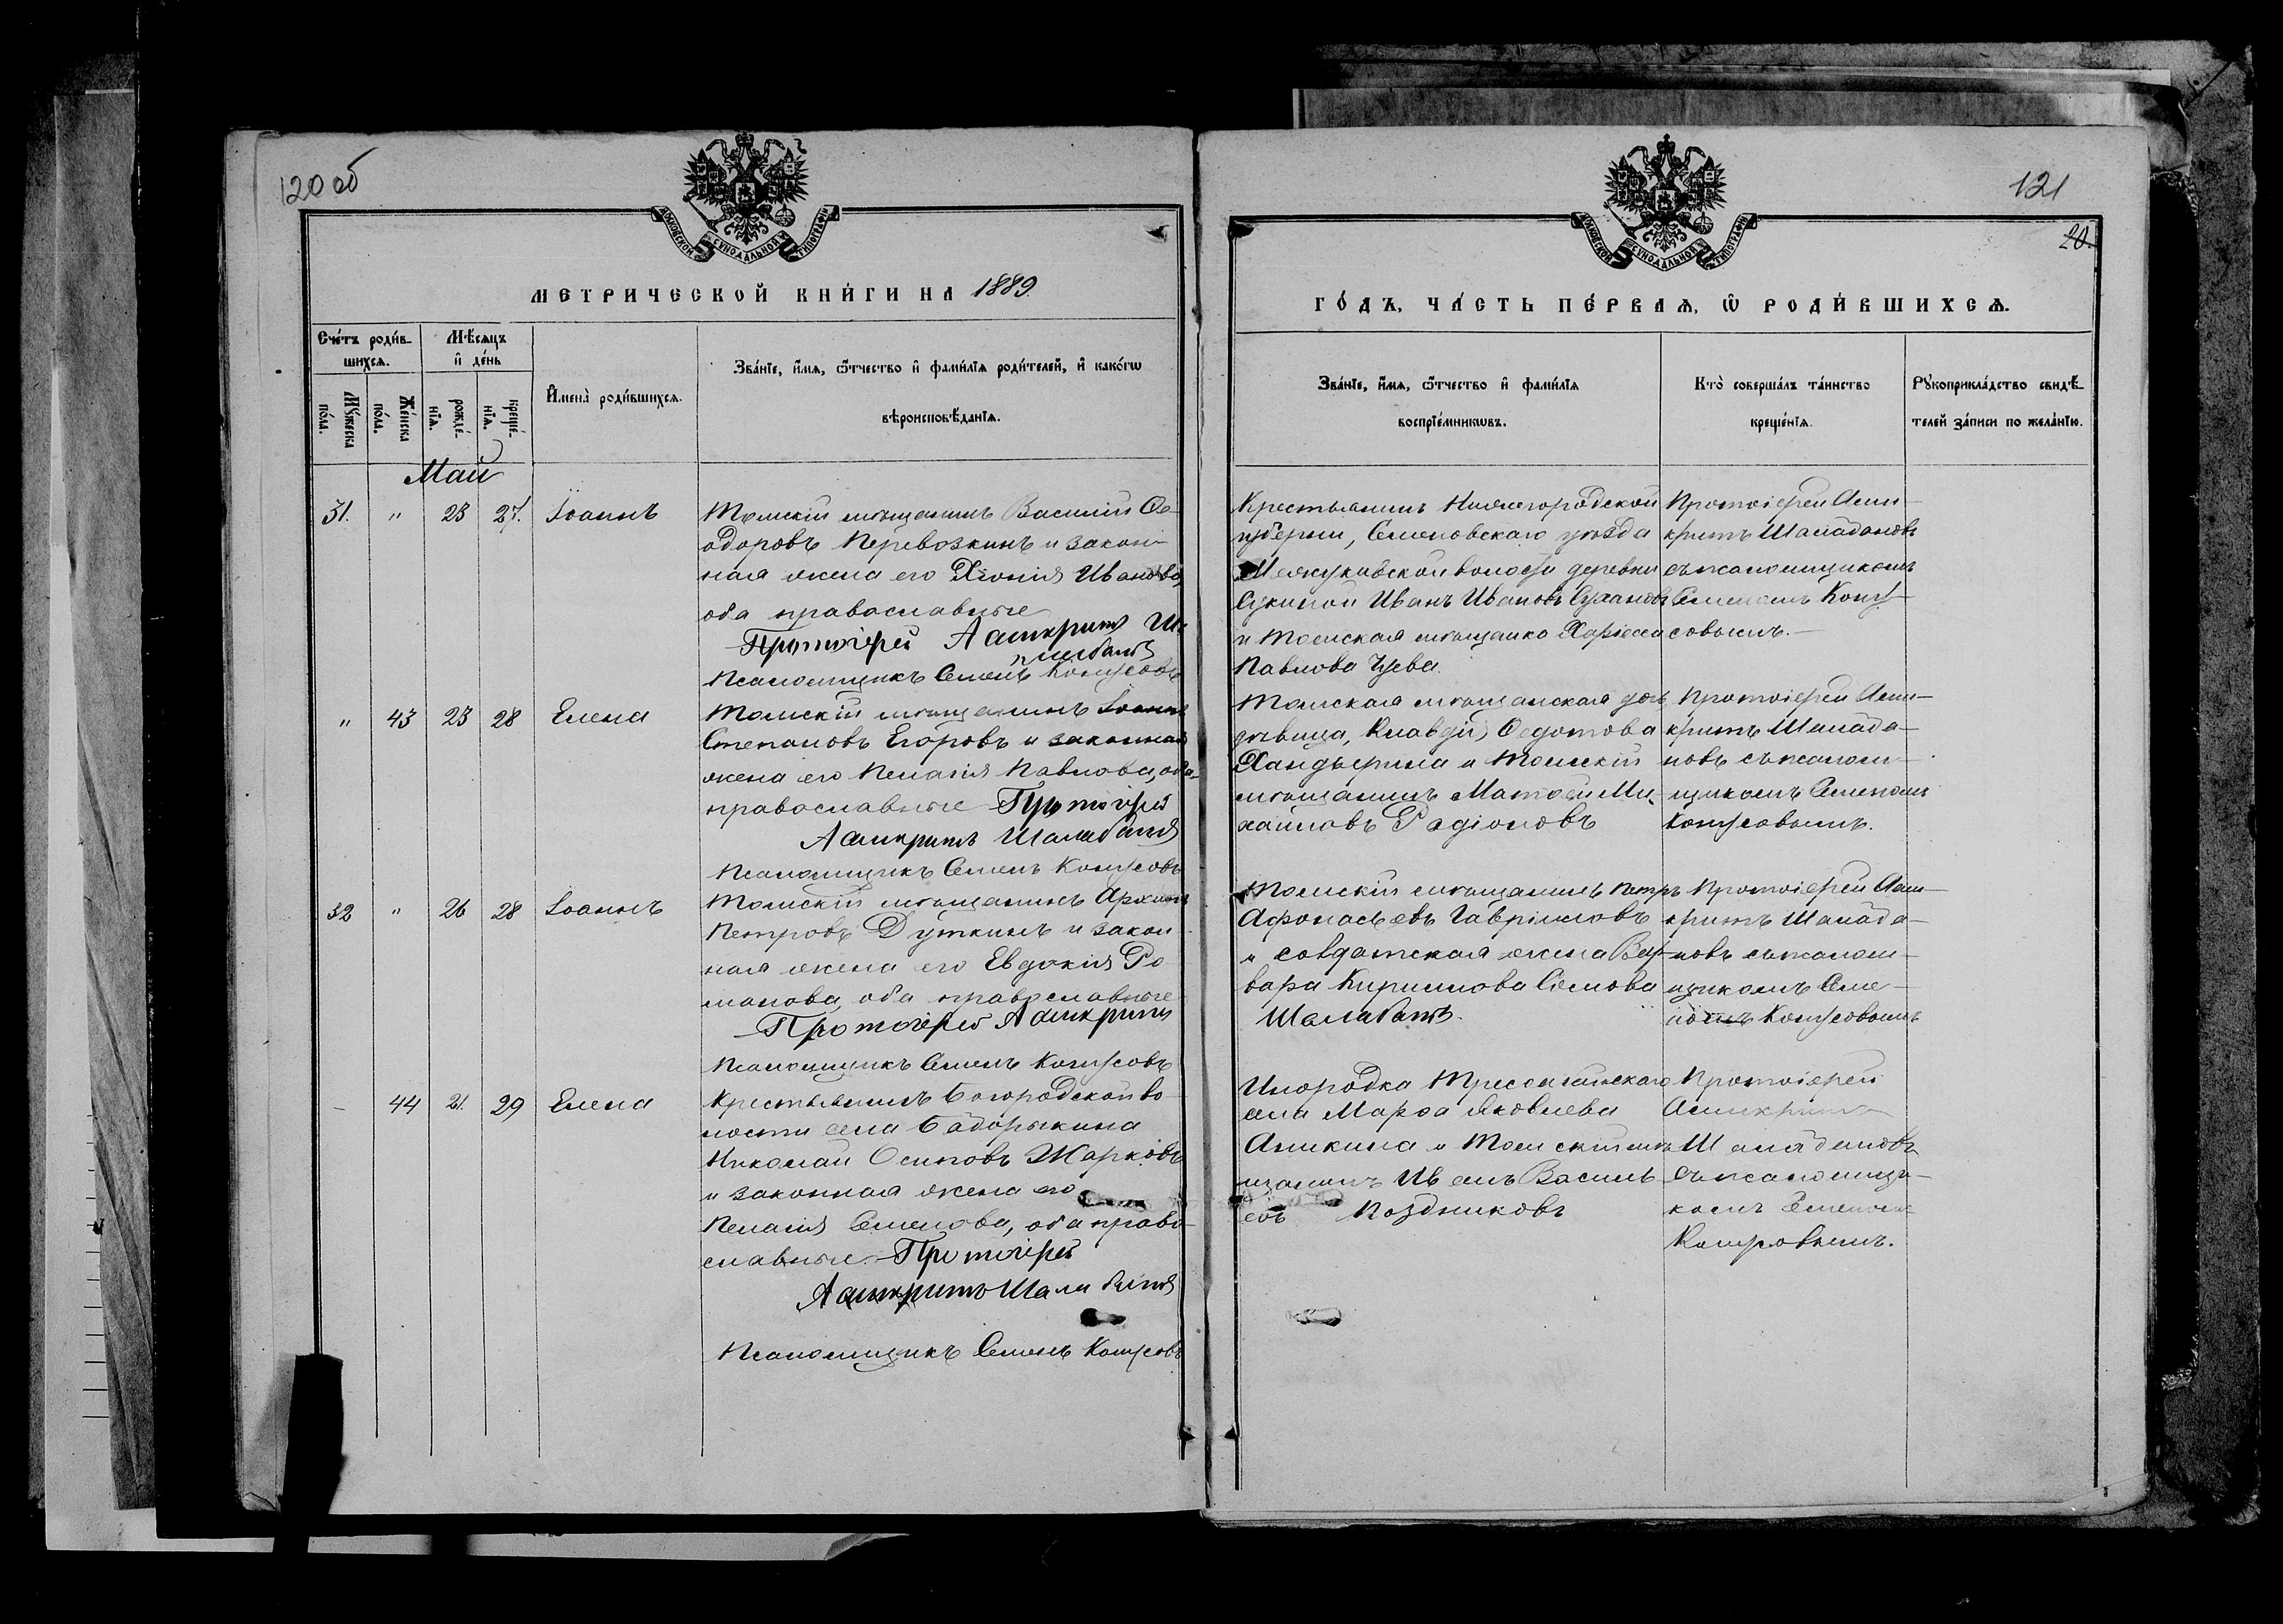 120 об
МОСКОВСКОЙ СΥНОДАЛЬНОЙ ТИПОГРАФІИ
МЕТРИЧЕСКОЙ КНИ́ГИ НА 1889
Сче́тъ роди́в-
шихсѧ.
Мꙋ́жеска
по́ла.
Же́нска
по́ла.
Мѣ́сѧцъ
и҆ де́нь
рожде́-
нїѧ.
креще́-
нїѧ.
И҆мена̀ роди́вшихсѧ.
Зва́нїе, и҆́мѧ, ѻ҆́тчество и҆ фами́лїѧ роди́телей, и҆ како́гѡ
вѣроисповѣ́данїѧ.
Май
31. " 23 27. Іоаннъ
Томскій мѣщанинъ Василій Ѳе-
одоровъ Перевозкинъ и закон-
ная жена его Хіонія Иванова,
оба православные
Протоіерей Асинкритъ
Псаломщикъ Семенъ
" 43 23 28 Елена
Томскій мѣщанинъ Іоаннъ
Степановъ Егоровъ и законная
жена его Пелагія Павлова, оба
православные Протоіерей
Асинкритъ
Псаломщикъ Семенъ
32 " 26 28 Іоаннъ
Томскій мѣщанинъ Архипъ
Петровъ Дуткинъ и закон-
ная жена его Евдокія Ро-
манова, оба православные
Протоіерей Асинкритъ
Псаломщикъ Семенъ
- 44 21. 29 Елена
Крестьянинъ Богородской во-
лости села Бадорыкина
Николай Осиповъ Жарковъ
и законная жена его
Пелагія Семенова, оба право-
славные. Протоіерей
Асинкритъ
Псаломщикъ Семенъ
121
20.
МОСКОВСКОЙ СΥНОДАЛЬНОЙ ТИПОГРАФІИ
ГО́ДЪ, ЧА́СТЬ ПЕ́РВАѦ, Ѽ РОДИ́ВШИХСѦ.
Зва́нїе, и҆́мѧ, ѻ҆́тчество и҆ фами́лїѧ
воспрїе́мникѡвъ.
Кто̀ соверша́лъ та́инство
креще́нїѧ.
Рꙋкоприкла́дство свидѣ́-
телей за́писи по жела́нїю.
Крестьянинъ Нижегородской
губерніи, Семеновскаго уѣзда
волости деревни
Иванъ Ивановъ
и Томская мѣщанка
Павлова
Протоіерей Асин-
критъ
съ псаломщикомъ
Семеномъ
Томская мѣщанская дочь
дѣвица, Клавдія Ѳедотова
и Томскій
мѣщанинъ Матѳей Ми-
хайловъ Радіоновъ
Протоіерей Асин-
критъ
съ псалом-
щикомъ Семеномъ
Томскій мѣщанинъ Петръ
Афонасьевъ Гавриловъ
и солдатская жена Вар-
вара Кирилова Сомова
Протоіерей Асин-
критъ
съ псалом-
щикомъ Семе-
номъ
Инородка
села Марѳа Яковлева
Аникина и Томскій мѣ-
щанинъ Иванъ Василь-
евъ Поздниковъ
Протоіерей
Асинкритъ
съ псаломщи-
комъ Семеномъ